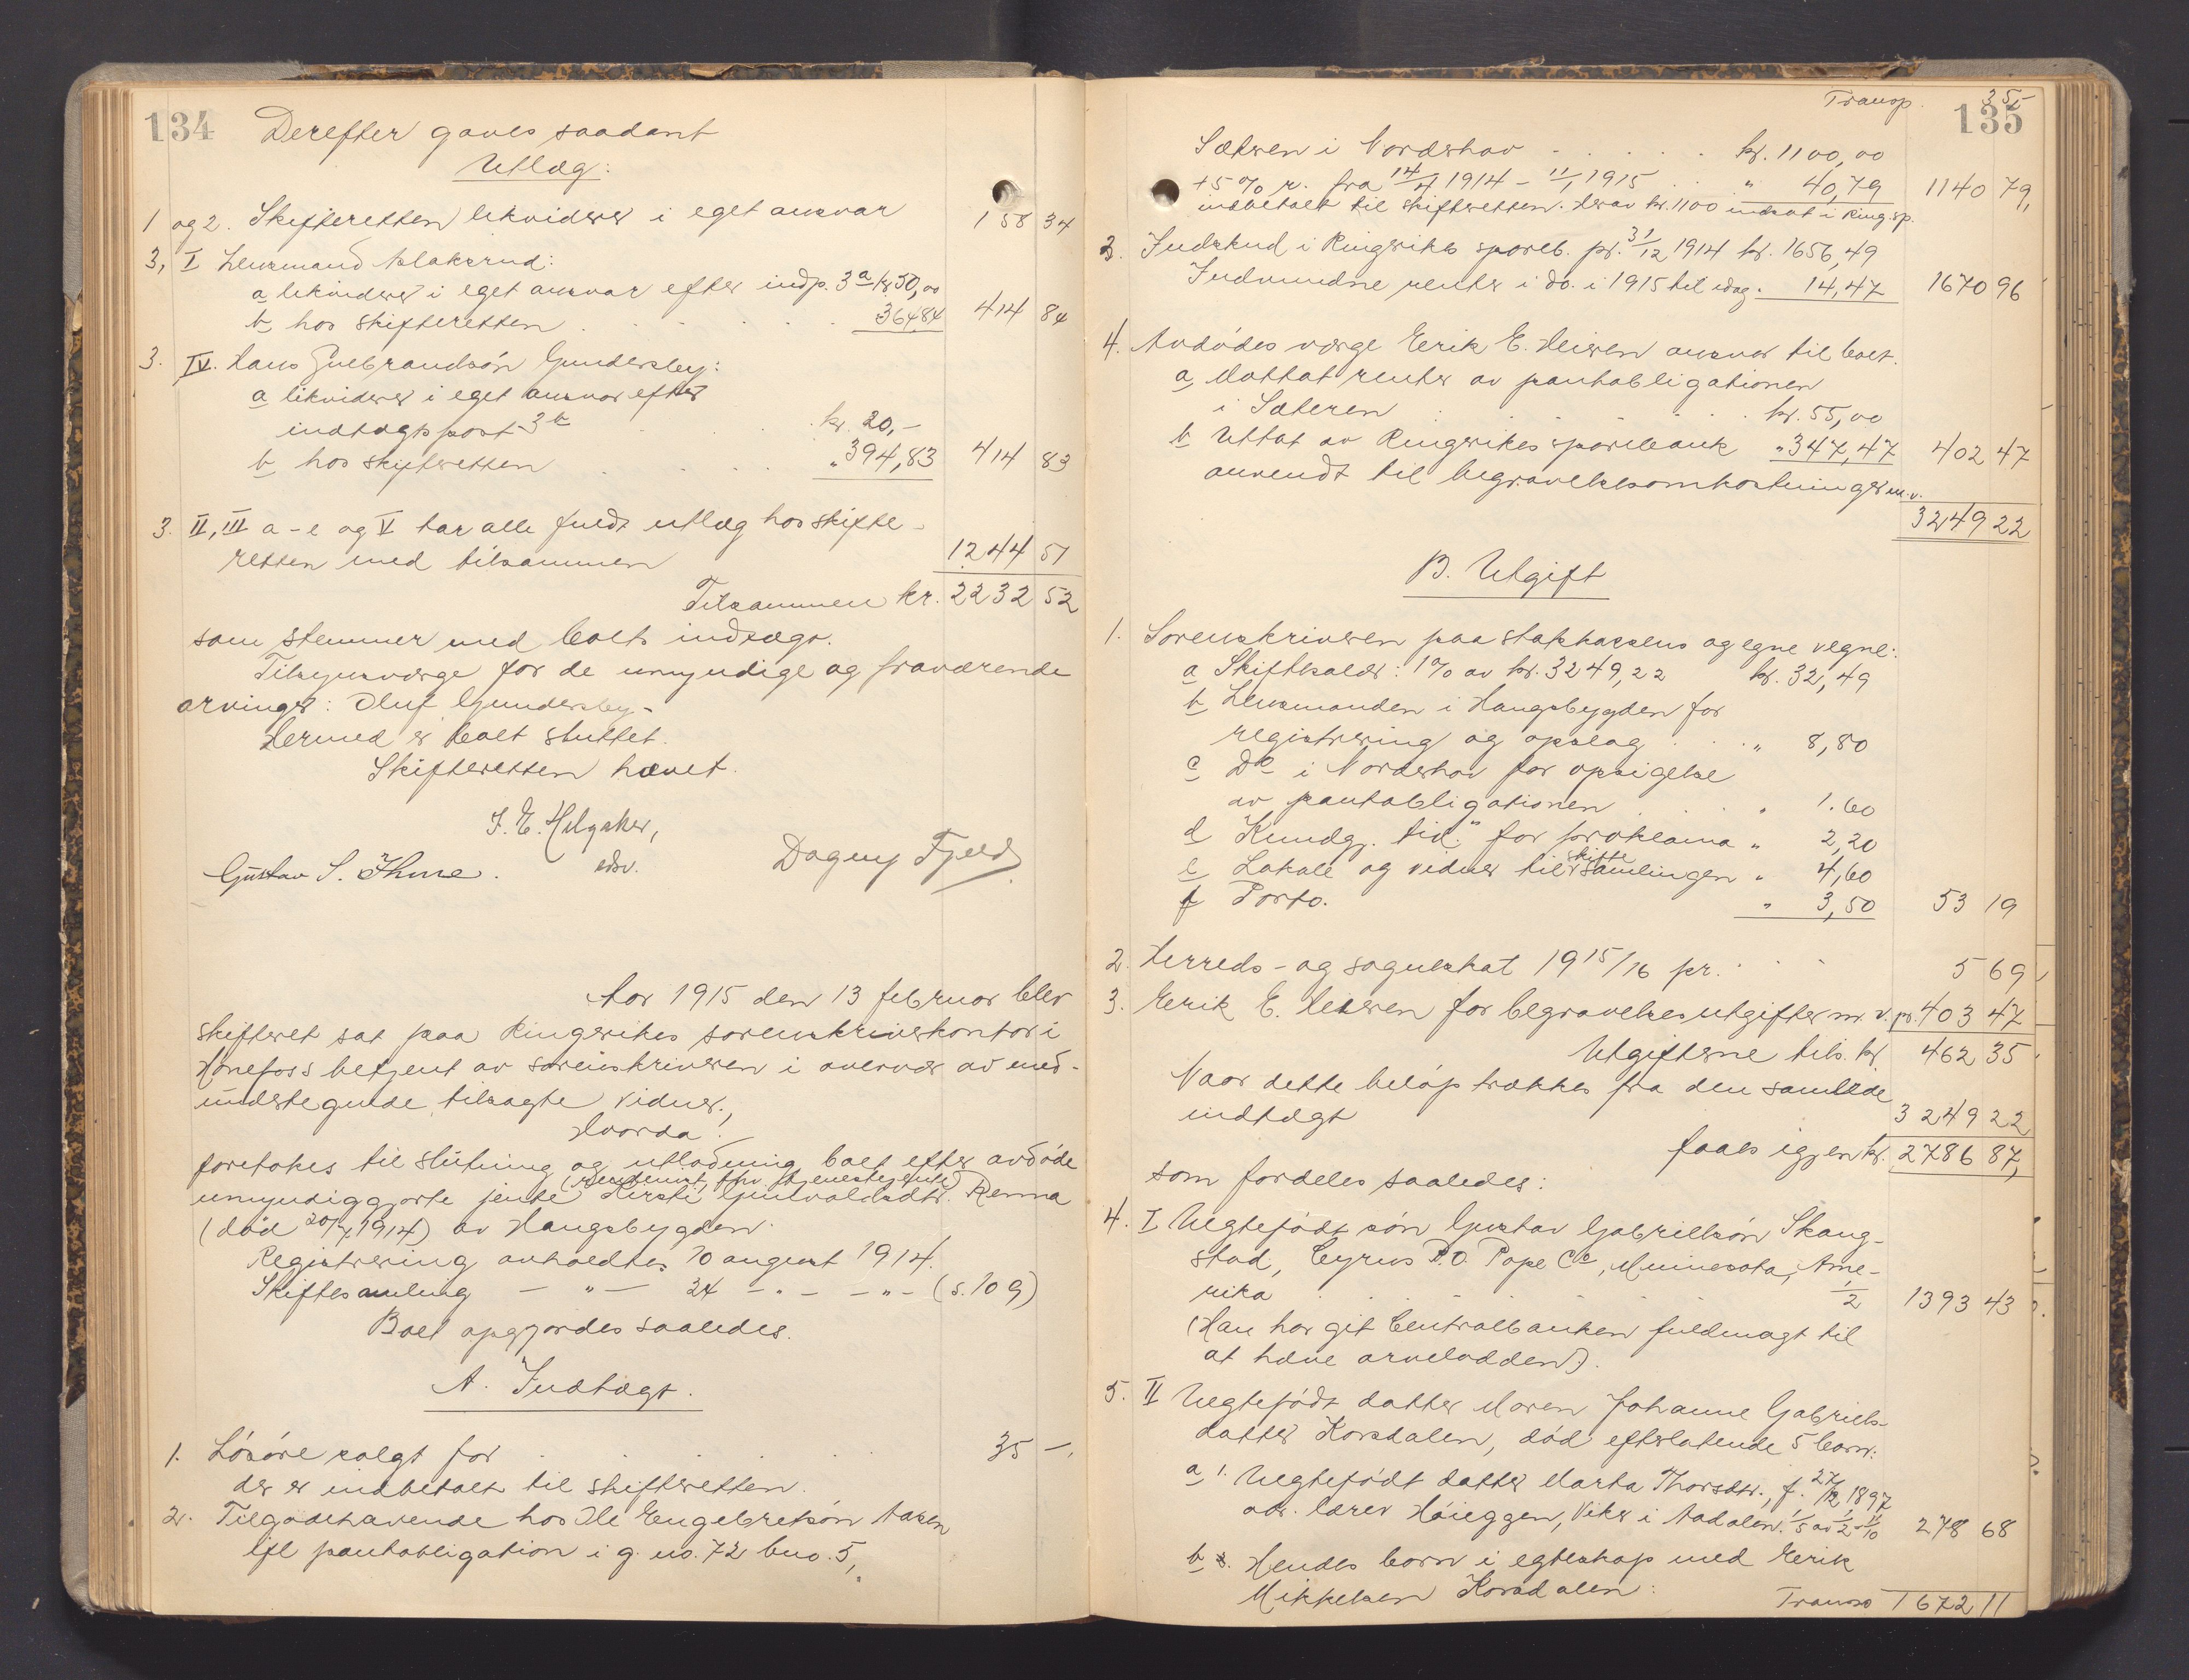 134
Derefter gaves saadant
Utlæg:
1 og 2. Skifteretten likviderer i eget ansvar 158 34
3, I Lensmand Klaksrud:
a likviderer i eget ansvar efter indp. 3a kr 50,00
b hos skifteretten . . . . . . 364,84 414 84
3. IV. Hans Gulbrandsøn Gundersby:
a likviderer i eget ansvar efter
indtægtspost 3 b . . . kr. 20,-
b hos skifteretten . . . . „ 394,83 414 83
3. II, III a-e og V har alle fuldt utlæg hos skifte-
retten med tilsammen 1244 51
Tilsammen kr. 2232 52
som stemmer med boets indtægt.
Tilsynsværge for de umyndige og fraværende
arvinger: Oluf Gundersby.
Hermed er boet sluttet.
Skifteretten hævet.
F. E. Helgaker,
edsv.
Gustav S. Thune. Dagny Fjeld
Aar 1915 den 13 februar blev
skifteret sat paa Ringerikes sorenskriverkontor i
Hønefoss betjent av sorenskriveren i overvær av med-
undertegnede tilsagte vidner.,
Hvorda!
foretokes til slutning og utlodning boet efter avdøde
umyndiggjorte jente Kirsti Gunvaldsdtr. Renna
(død 20/4 1914) av Haugsbygden.
Registrering avholdtes 10 august 1914.
Skiftesamling — „ — 24 — „ — — „ — (s. 109)
Boet opgjordes saaledes.
A. Indtægt.
1. Løsøre solgt for . . . . . 35 —,
der er indbetalt til skifteretten.
2. Tilgodehavende hos Ole Engebretsøn Aasen
ifl pantobligation i g. no. 72 bno. 5,
Transp. 35 -
135
Sæteren i Norderhov - . . . . . kr. 1100,00
+ 5 % r. fra 14/4 1914 - 11/1 1915 . . „ 40,79 1140 79,
indbetalt til skifteretten. Herav kr. 1100 indsat i Ring. sp.
3. Indskud i Ringerikes spareb. pr. 31/12 1914 kr. 1656,49
Indvundne renter i do. i 1915 til idag. 14,47 1670 96
4. Avdødes værge Erik E. Heieren ansvar til boet.
a Mottat renter av pantobligationen
i Sæteren . . . . . . kr. 55,00
b Uttat av Ringerikes sparebank „ 347,47 402 47
anvendt til begravelsesomkostninger m.v.
3249 22
B. Utgift
1. Sorenskriveren paa statskassens og egne vegne:
a Skiftesalær: 1% av kr. 3249,22 kr. 32,49
b Lensmanden i Haugsbygden for
registrering og opslag . . . „ 8,80
c Do i Norderhov for opsigelse
av pantobligationen . . . „ 1.60
d „Kundgj. tid." for proklama „ 2,20
e Lokale og vidner til skiftesamlingen „ 4,60
f Porto. „ 3,50 53 19
2. Herreds- og sogneskat 1915/16 pr. . . . 5 69
3. Erik E. Heieren for begravelsesutgifter m.v. pr. 403 47
Utgifterne tils. kr. 462 35
Naar dette beløp trækkes fra den samlede
indtægt 3249 22
faaes igjen kr. 2786 87,
som fordeles saaledes:
4. I Uegtefødt søn Gustav Gabrielsøn Skaug-
stad, Cyrus P.O. Pope Co, Minnesota, Ame-
rika . . . . . . . 1/2 1393 43
(Han har git Centralbanken fuldmagt til
at hæve arvelodden).
5. II Uegtefødt datter Maren Johanne Gabriels-
datter Korsdalen, død efterlatende 5 barn:
a 1. Uegtefødt datter Marta Thorsdtr., f. 27/12 1897
adr. lærer Høieggen, Viker i Aadalen. 1/5 av 1/2 = 1/10 278 68
b Hendes barn i egteskap med Erik
Mikkelsen Korsdalen:
Transp 1672 11